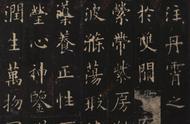 注丹霄之
於雙闕
縈帶紫房
波滌蕩瑕
導養正性
瑩心神鑒
潤生萬物